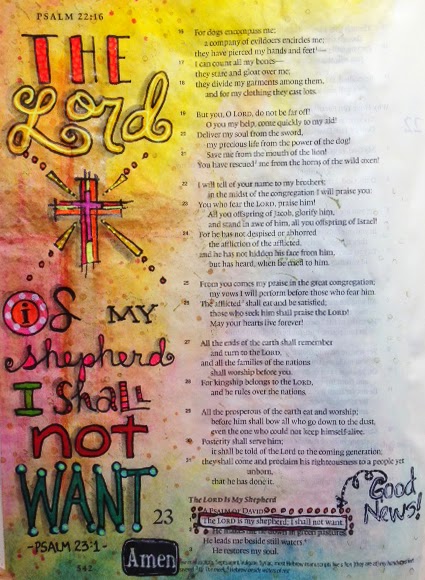 PSALM 22:16
THE
Lord
is MY
shepherd
I shall
not
WANT
-PSALM 23:1-
542
Amen
16 For dogs encompass me;
a company of evildoers encircles me;
they have pierced my hands and feet
17 I can count all my bones—
they stare and gloat over me;
18 they divide my garments among them,
and for my clothing they cast lots.
19 But you, O LORD, do not be far off!
O you my help, come quickly to my aid!
20 Deliver my soul from the sword,
my precious life from the power of the dog!
21 Save me from the mouth of the lion!
You have rescued me from the horns of the wild oxen!
22 I will tell of your name to my brothers;
in the midst of the congregation I will praise you:
23 You who fear the LORD, praise him!
All you offspring of Jacob, glorify him,
and stand in awe of him, all you offspring of Israel!
24 For he has not despised or abhorred
the affliction of the afflicted,
and he has not hidden his face from him,
but has heard, when he cried to him.
25 From you comes my praise in the great congregation;
my vows I will perform before those who fear him.
26 The afflicted shall eat and be satisfied;
those who seek him shall praise the LORD!
May your hearts live forever!
27 All the ends of the earth shall remember
and turn to the LORD,
and all the families of the nations
shall worship before you.
28 For kingship belongs to the LORD,
and he rules over the nations.
29 All the prosperous of the earth eat and worship;
before him shall bow all who go down to the dust,
even the one who could not keep himself alive.
30 Posterity shall serve him;
it shall be told of the Lord to the coming generation;
31 they shall come and proclaim his righteousness to a people yet
unborn,
that he has done it.
The LORD Is My Shepherd
A PSALM OF DAVID.
23 The LORD is my shepherd; I shall not want.
He makes me lie down in green pastures.
He leads me beside still waters.
He restores my soul.
Good
News!